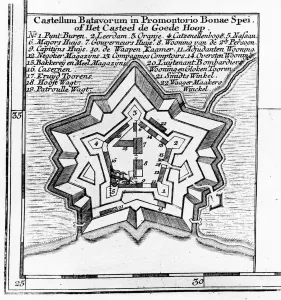 Castellum Batavorum in Promontorio Bonae Spei.
of Het Casteel de Goede Hoop.
No 1. Punt Buren. 2. Leerdam. 3. Oranje. 4. Catsenellenboge. 5. Nassau.
6. Majors Huys. 7. Gouverneurs Huys. 8. Wooning van de 2de Persoon.
9. Capiteins Huys. 10. de Waapen Kaamer. 11. Adjudanten Wooning.
12. Negotie Magazijns. 13. Compagnies Comptoirs. 14. Oversten Wooning.
15. Bakkerij en Meel Magazijns. 20. Luijtenant Bombardiers
16. Caserpen. Wooning en Cloken Tooren.
17. Kruyd Toorens. 21. Smidts Winkel.
18. Hooft Wagt. 22. Waager Maakers
19. Patroulle Wagt. Winckel.
35
25
30